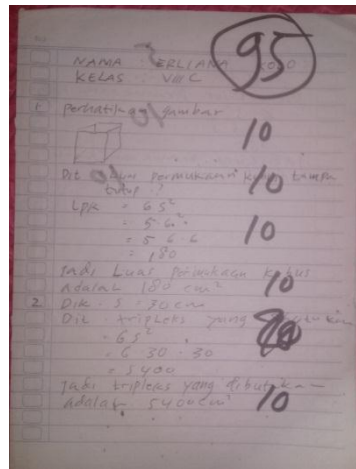 No
95
NAMA : ERLIANA KOLO
KELAS : VIII C
1 perhatikan gambar
10
Dit Luas permukaan kubus tampa
tutup ?
10
LPK = 6 s²
= 5 · 6²
= 5 · 6 · 6
10
= 180
Jadi Luas permukaan kubus
adalah 180 cm²
10
2 Dik · s · 30 cm
Dit · tripleks yang
= 6 s²
= 6 · 30 · 30
= 5400
Jadi tripleks yang dibutukan
adalah 5400 cm²
10